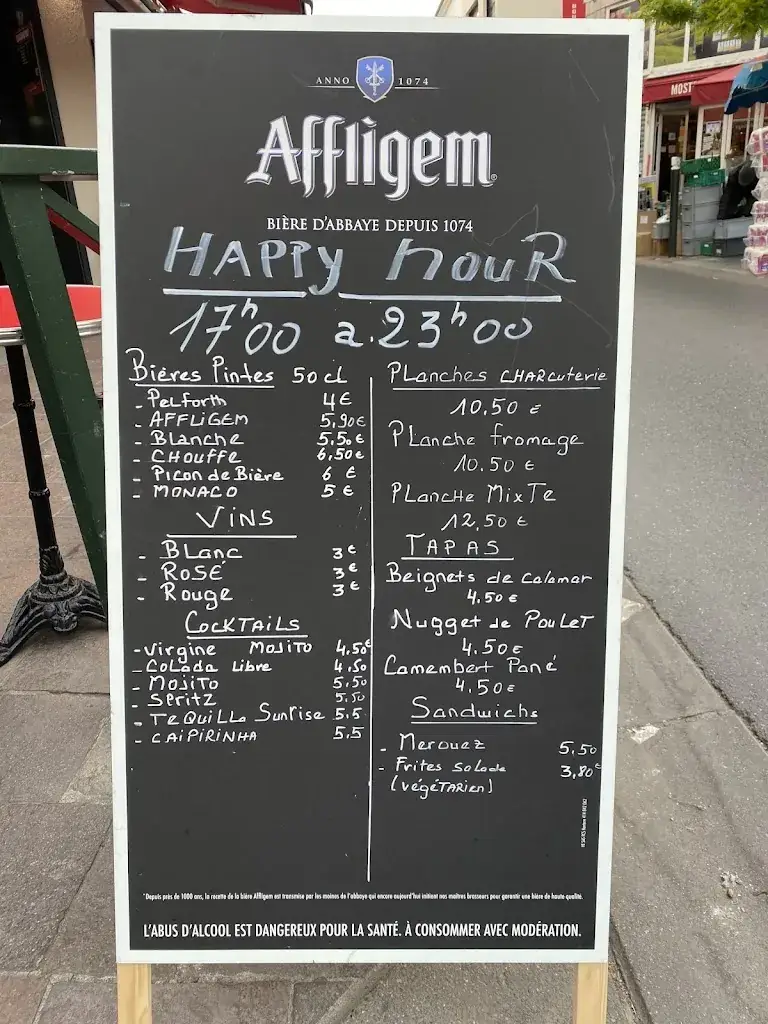 ANNO 1074
Affligem
BIÈRE D'ABBAYE DEPUIS 1074
HAPPY HOUR
17h00 a.23h00
Bières Pintes 50 cl
- Pelforth 4€
- AFFLIGEM 5,90€
- Blanche 5,50€
- CHOUFFE 6,50€
- Picon de Bière 6 €
- MONACO 5 €
VINS
- BLANC 3€
- ROSÉ 3€
- Rouge 3€
COCKTAILS
- Virgine MOJITO 4.50€
- Colada Libre 4.50
- MOJITO 5.50
- SPRITZ 5.50
- TEQUILLA Sunrise 5.5
- CAIPIRINHA 5.5
PLanches CHARcuterie
10,50 €
PLanche fromage
10.50 €
PLANCHE MixTe
12,50 €
TAPAS
Beignets de Calamar
4,50 €
Nugget de POULET
4.50€
Camembert Pané
4.50€
Sandwichs
- Merguez 5,50
- Frites Salade 3,80€
(végéTARien)
*Depuis près de 1000 ans, la recette de la bière Affligem est transmise par les moines de l'abbaye qui encore aujourd'hui initient nos maîtres brasseurs pour garantir une bière de haute qualité.
L'ABUS D'ALCOOL EST DANGEREUX POUR LA SANTÉ. À CONSOMMER AVEC MODÉRATION.